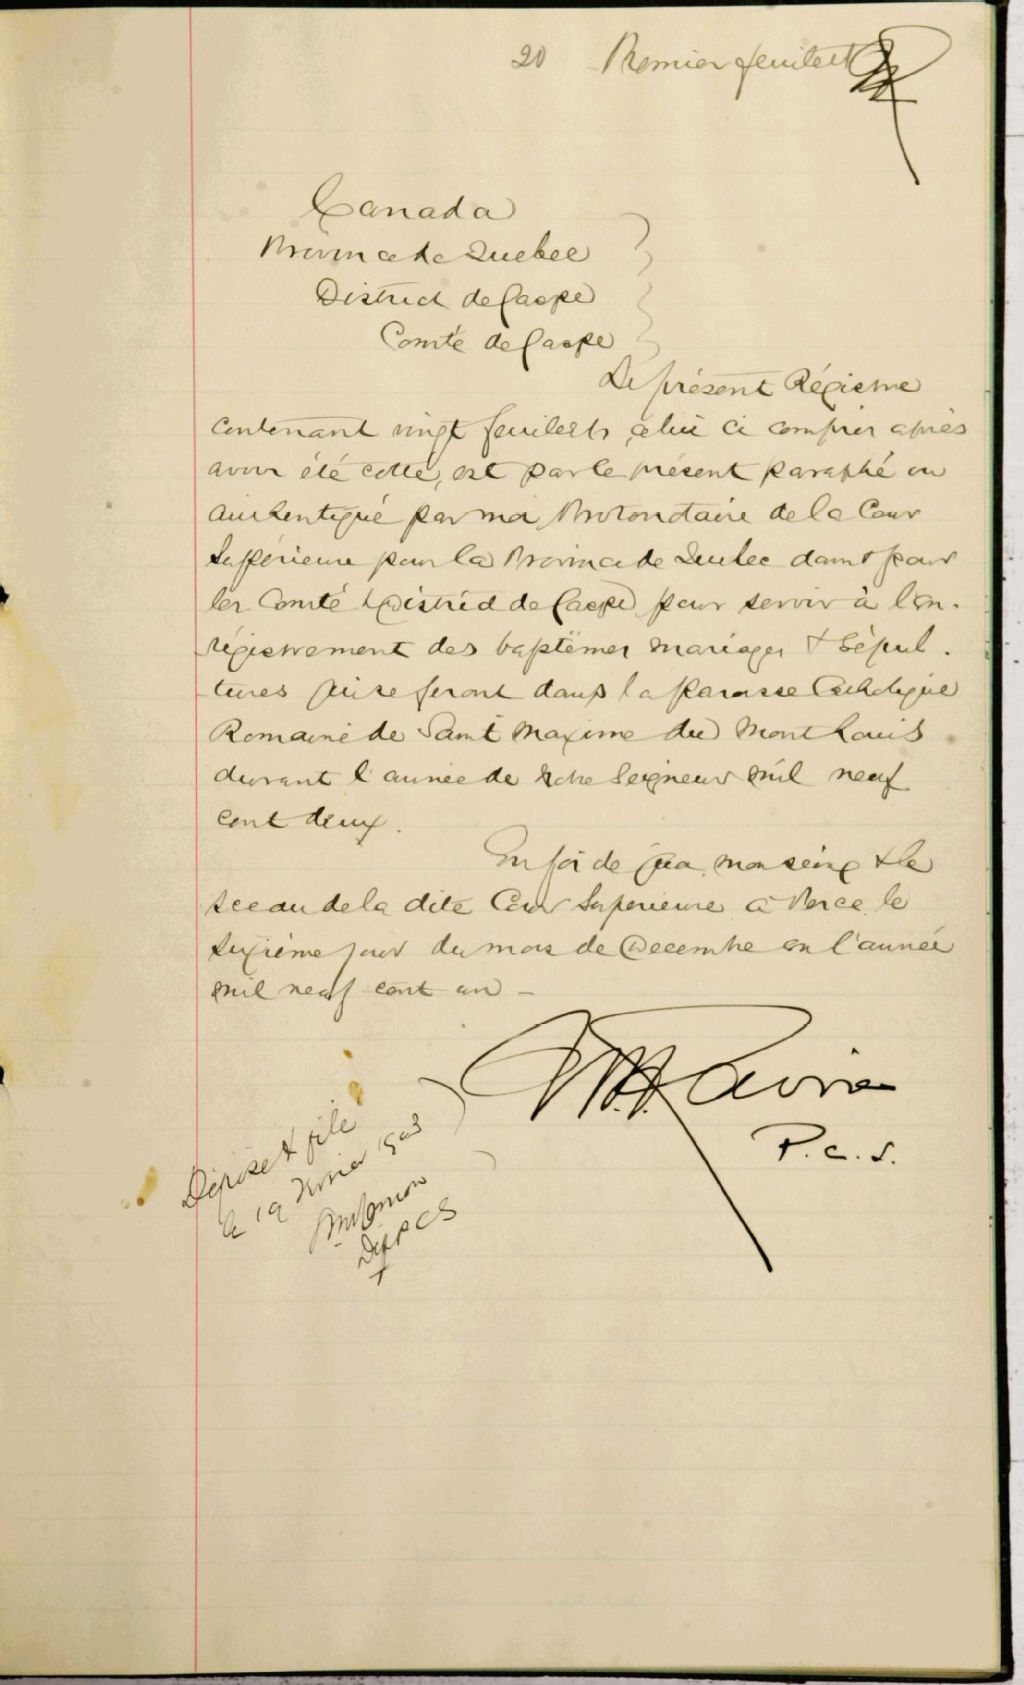 20 Premier feuillet
Canada
Province de Quebec
District de Gaspé
Comté de Gaspé
Le présent Régistre
contenant vingt feuillets celui ci compris après
avoir été cotté, est par le présent paraphé ou
authentiqué par moi Protonotaire de la Cour
Supérieure pour la Province de Quebec dans & pour
les Comté & District de Gaspé pour servir à l'en-
régistrement des baptêmes mariages & sépul-
tures qui se feront dans la Paroisse Catholique
Romaine de Saint Maxime du Mont Louis
durant l'année de Notre Seigneur mil neuf
cent deux.
En foi de quoi mon seing & le
sceau de la dite Cour Supérieure à Percé le
sixième jour du mois de Decembre en l'année
mil neuf cent un -
P.C.S.
Déposé & filé
le 19 Février 1903
Dep P C S